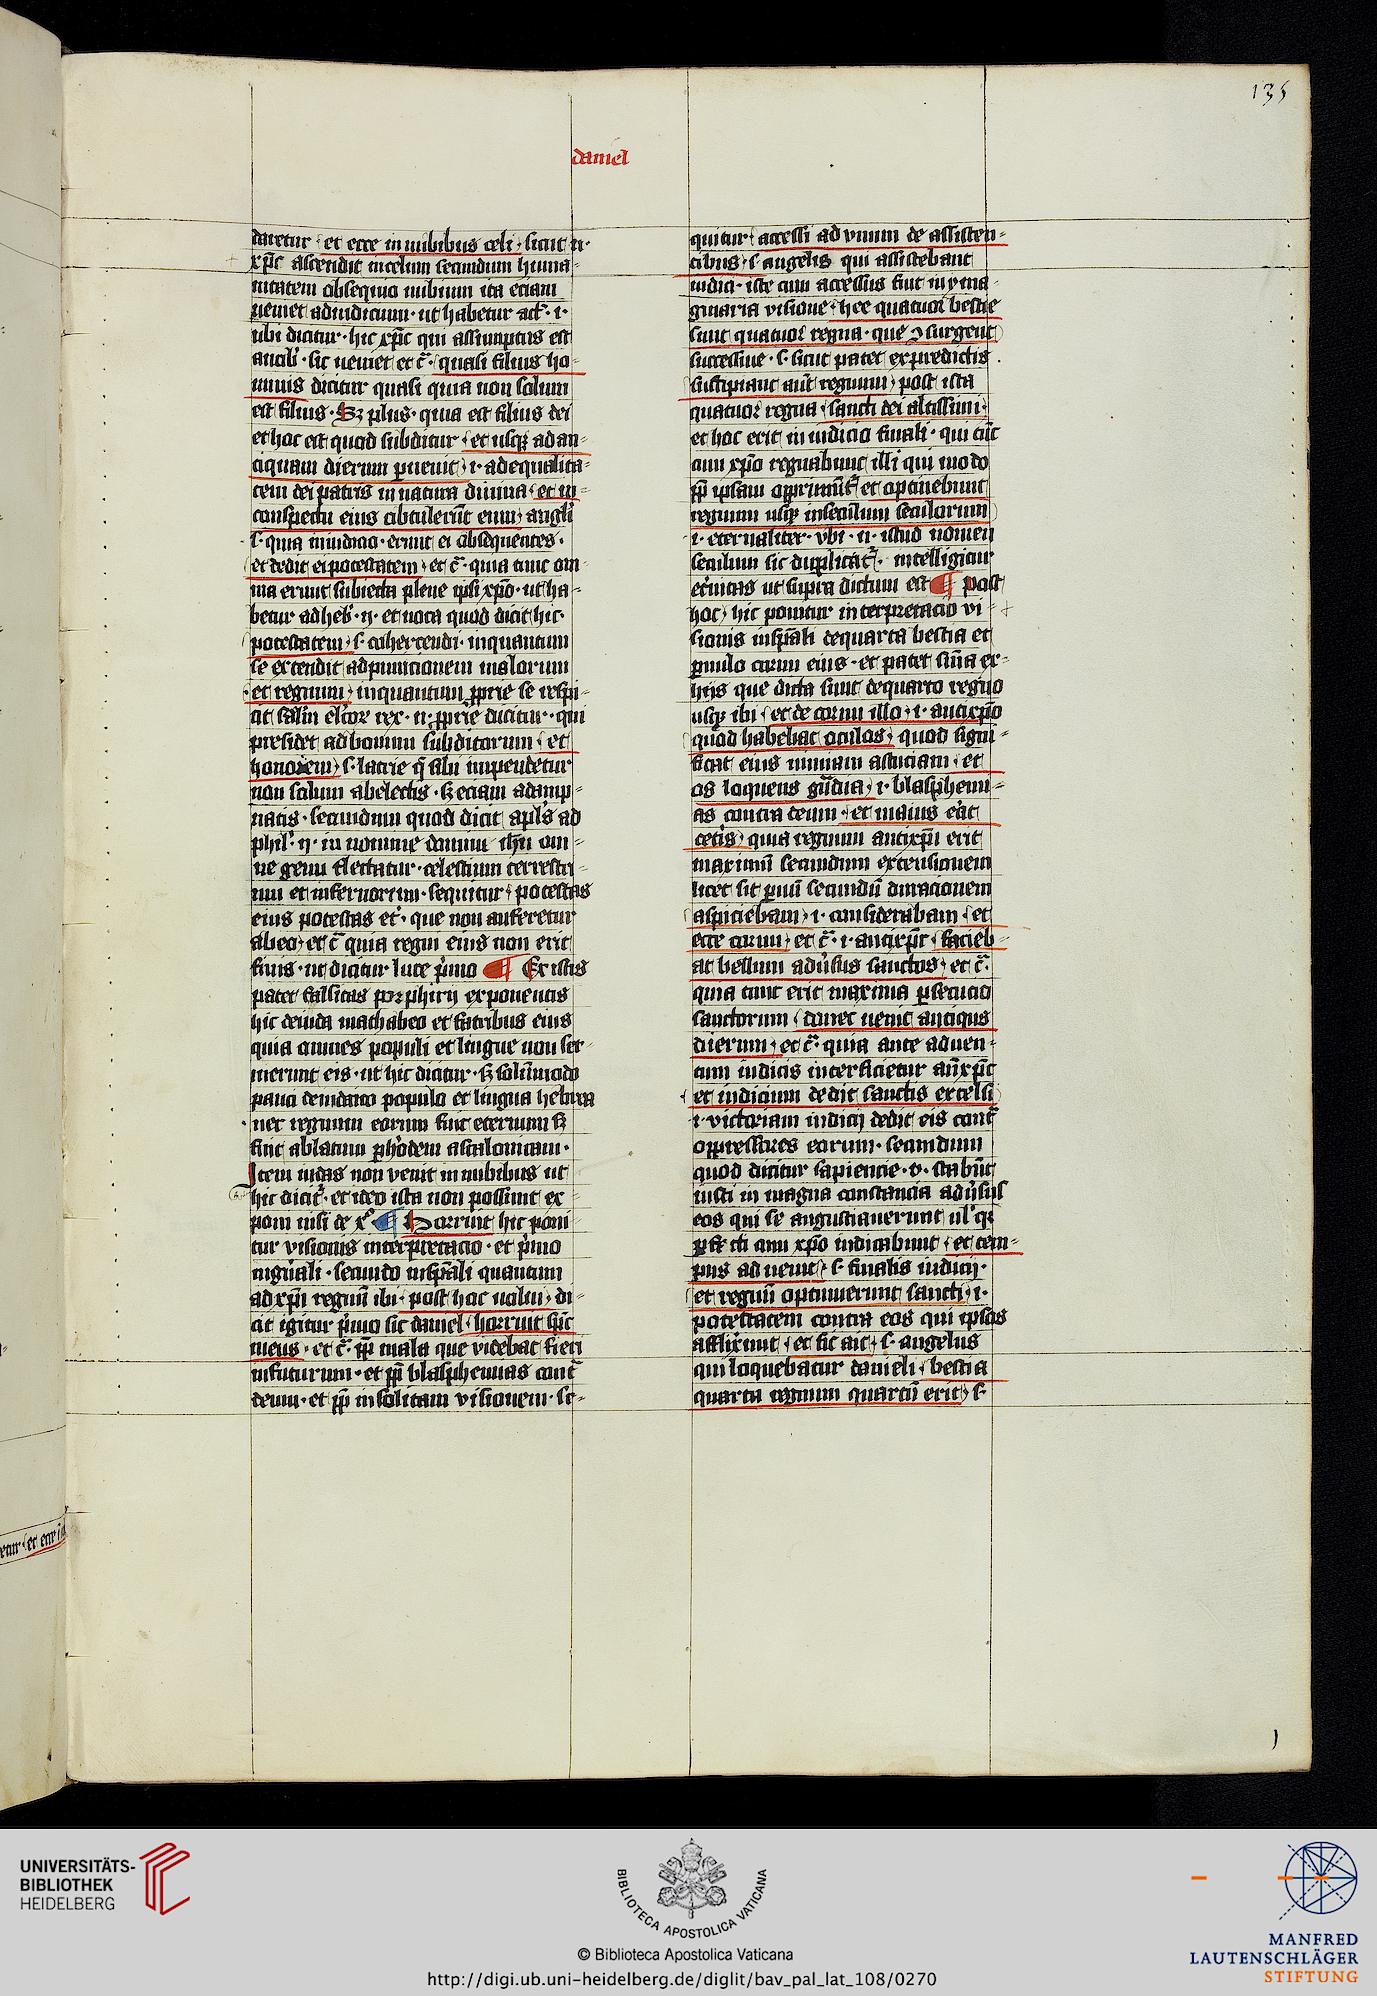 135
daniel
daretur et ecce in nubibus celi · sicut n·
xp̄c ascendit in celum secundum huma-
nitatem obsequio nubium ita etiam
ueniet ad iudicium · ut habetur act̄ · i·
ubi dicitur · hic xp̄c qui assumptus est
a uob̄ · sic ueniet et c̄ · quasi filius ho-
minis dicitur quasi quia non solum
est filius · Sꝫ plus · quia est filius dei
et hoc est quod subditur · et usqꝫ ad an-
tiquum dierum ꝑuenit · i· ad equalita-
tem dei patris in natura diuina · et in
conspectu eius obtulerūt eum angl̄i
s· quia in iudicio · erunt ei obsequentes ·
et dedit ei potestatem et c̄ · quia tunc om-
nia erunt subiecta plene ipsi xp̄o · ut ha-
betur ad heb̄ · ij · et nota quod dicit hic ·
potestatem s· cohercendi · inquantum
se extendit ad punicionem malorum
et regnum inquantum ꝓprie se respi-
cit salūi elc̄or rex · n· ꝓprie dicitur · qui
presidet ad bonum subditorum · et
honorem s· latrie q̄ sibi impendetur
non solum ab electis · sꝫ etiam a damp-
natis · secundum quod dicit apl̄s ad
phil̄ · ij · in nomine domini ih̄u om-
ne genu flectatur · celestium terrestri-
um et infernorum · sequitur · potestas
eius potestas et̄ · que non auferetur
ab eo et c̄ quia regni eius non erit
finis · ut dicitur luce p̄mo ¶ Ex istis
patet falsitas porphirij exponentis
hic de iuda machabeo et fratribus eius
quia omnes populi et lingue non ser-
uierunt eis · ut hic dicitur · sꝫ solūmodo
pauci de iudaico populo et lingua hebrea
nec regnum eorum fuit eternum sꝫ
fuit ablatum ꝑ h̄odem ascalonitam ·
Item iudas non venit in nubibus ut
hic dicit̄ · et ideo ista non possunt ex
poni nisi de x̄o ¶ Horruit hic poni-
tur visionis interpretacio · et p̄mo
in gn̄ali · secundo in sp̄ali quantum
ad xp̄i regnū ibi · post hoc uolui di
cit igitur p̄mo sic daniel · horruit sp̄c
meus · et c̄ · ꝓp̄ mala que videbat fieri
in futurum · et ꝓp̄ blasphemias cont̄
deum · et ꝓp̄ insolitam visionem · se-
quitur accessi ad vnum de assisten-
tibus · s· angelis qui assistebant
iudici · iste cum accessus fuit in yma-
ginaria visione · hee quatuor bestie
sunt quatuor regna · que ꝯsurgent
successiue · s· sicut patet ex predictis .
suscipiant aūt regnum post ista
quatuor regna · sancti dei altissimi ·
et hoc erit in iudicio finali · qui tūc
cum xp̄o regnabunt illi qui modo
ꝓp̄ ipsam opprimūt̄ et optinebunt
regnum usqꝫ in seculum seculorum
i· eternaliter · vbi · n· istud nomen
seculum sic dupplicat̄ · intelligitur
et̄nitas ut supra dictum est ¶ post
hoc hic ponitur interpretacio vi-
sionis in sp̄ali de quarta bestia et
ꝑuulo cornu eius · et patet sn̄ia ex-
hijs que dicta sunt de quarto regno
usqꝫ ibi · et de cornu illo · i· antixp̄o
quod habebat oculos · quod signi-
ficat eius nimiam astuciam · et
os loquens gn̄dia · i· blasphemi-
as contra deum · et maius erat
cet̄is · quia regnum antixp̄i erit
maximū secundum extensionem
licet sit ꝑuū secundū duracionem
aspiciebam · i· considerabam · et
ecce cornu et c̄ · i· antixp̄c · facieb-
at bellum adūsus sanctos · et c̄ ·
quia tunc erit maxima ꝑsecucio
sanctorum · donec uenit antiqus
dierum · et c̄ · quia ante aduen-
tum iudicis interficietur an̄xp̄c
et iudicium dedit sanctis excelsi
i· victoriam iudicij dedit eis cont̄
oppressores eorum · secundum
quod dicitur sapiencie · v· stabūt
iusti in magna constancia adūsus
eos qui se angustiauerunt ul̄ qꝫ
ꝑf̄c̄ti cum xp̄o iudicabunt · et tem-
pus aduenit · s· finalis iudicij ·
et regnū optinuerunt sancti · i·
potestatem contra eos qui ipsos
afflixerunt · et sic ait · s· angelus
qui loquebatur danieli · bestia
quarta regnum quartū erit · s·
UNIVERSITÄTS-
BIBLIOTHEK
HEIDELBERG
BIBLIOTECA APOSTOLICA VATICANA
© Biblioteca Apostolica Vaticana
http://digi.ub.uni-heidelberg.de/diglit/bav_pal_lat_108/0270
MANFRED
LAUTENSCHLÄGER
STIFTUNG